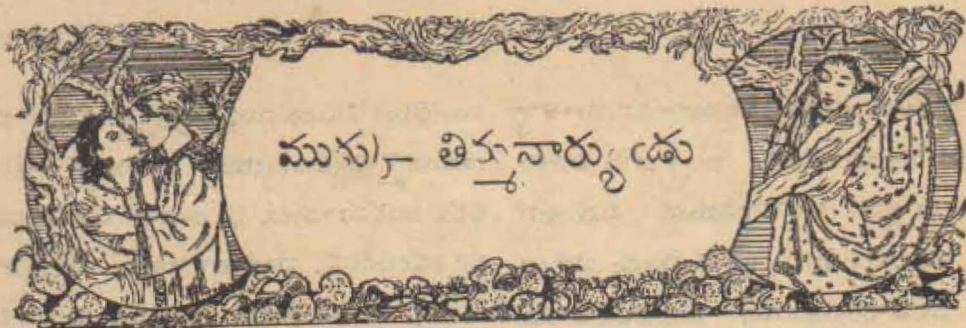 ముక్కు తిమ్మనార్యుఁడు